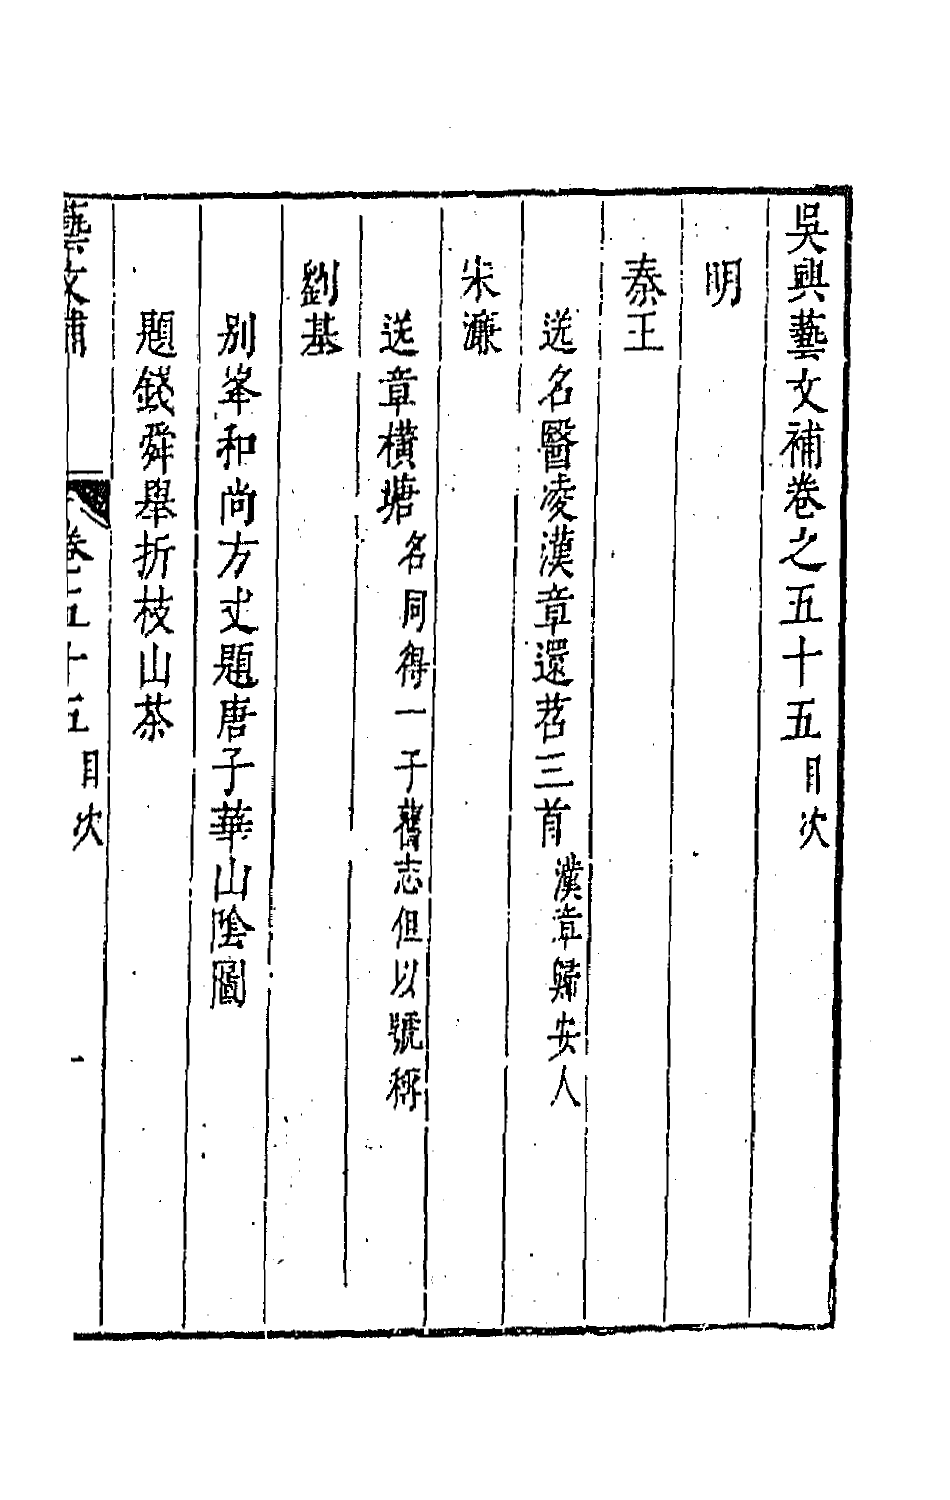 吳興藝文補卷之五十五目次
明
秦王
送名醫凌漢章還苕三首漢章歸安人
宋濂
送章橫塘名同得一于舊志但以號稱
劉基
别峯和尚方丈題唐子華山陰圖
題錢舜舉折枝山茶
藝文補 卷五十五目次 一